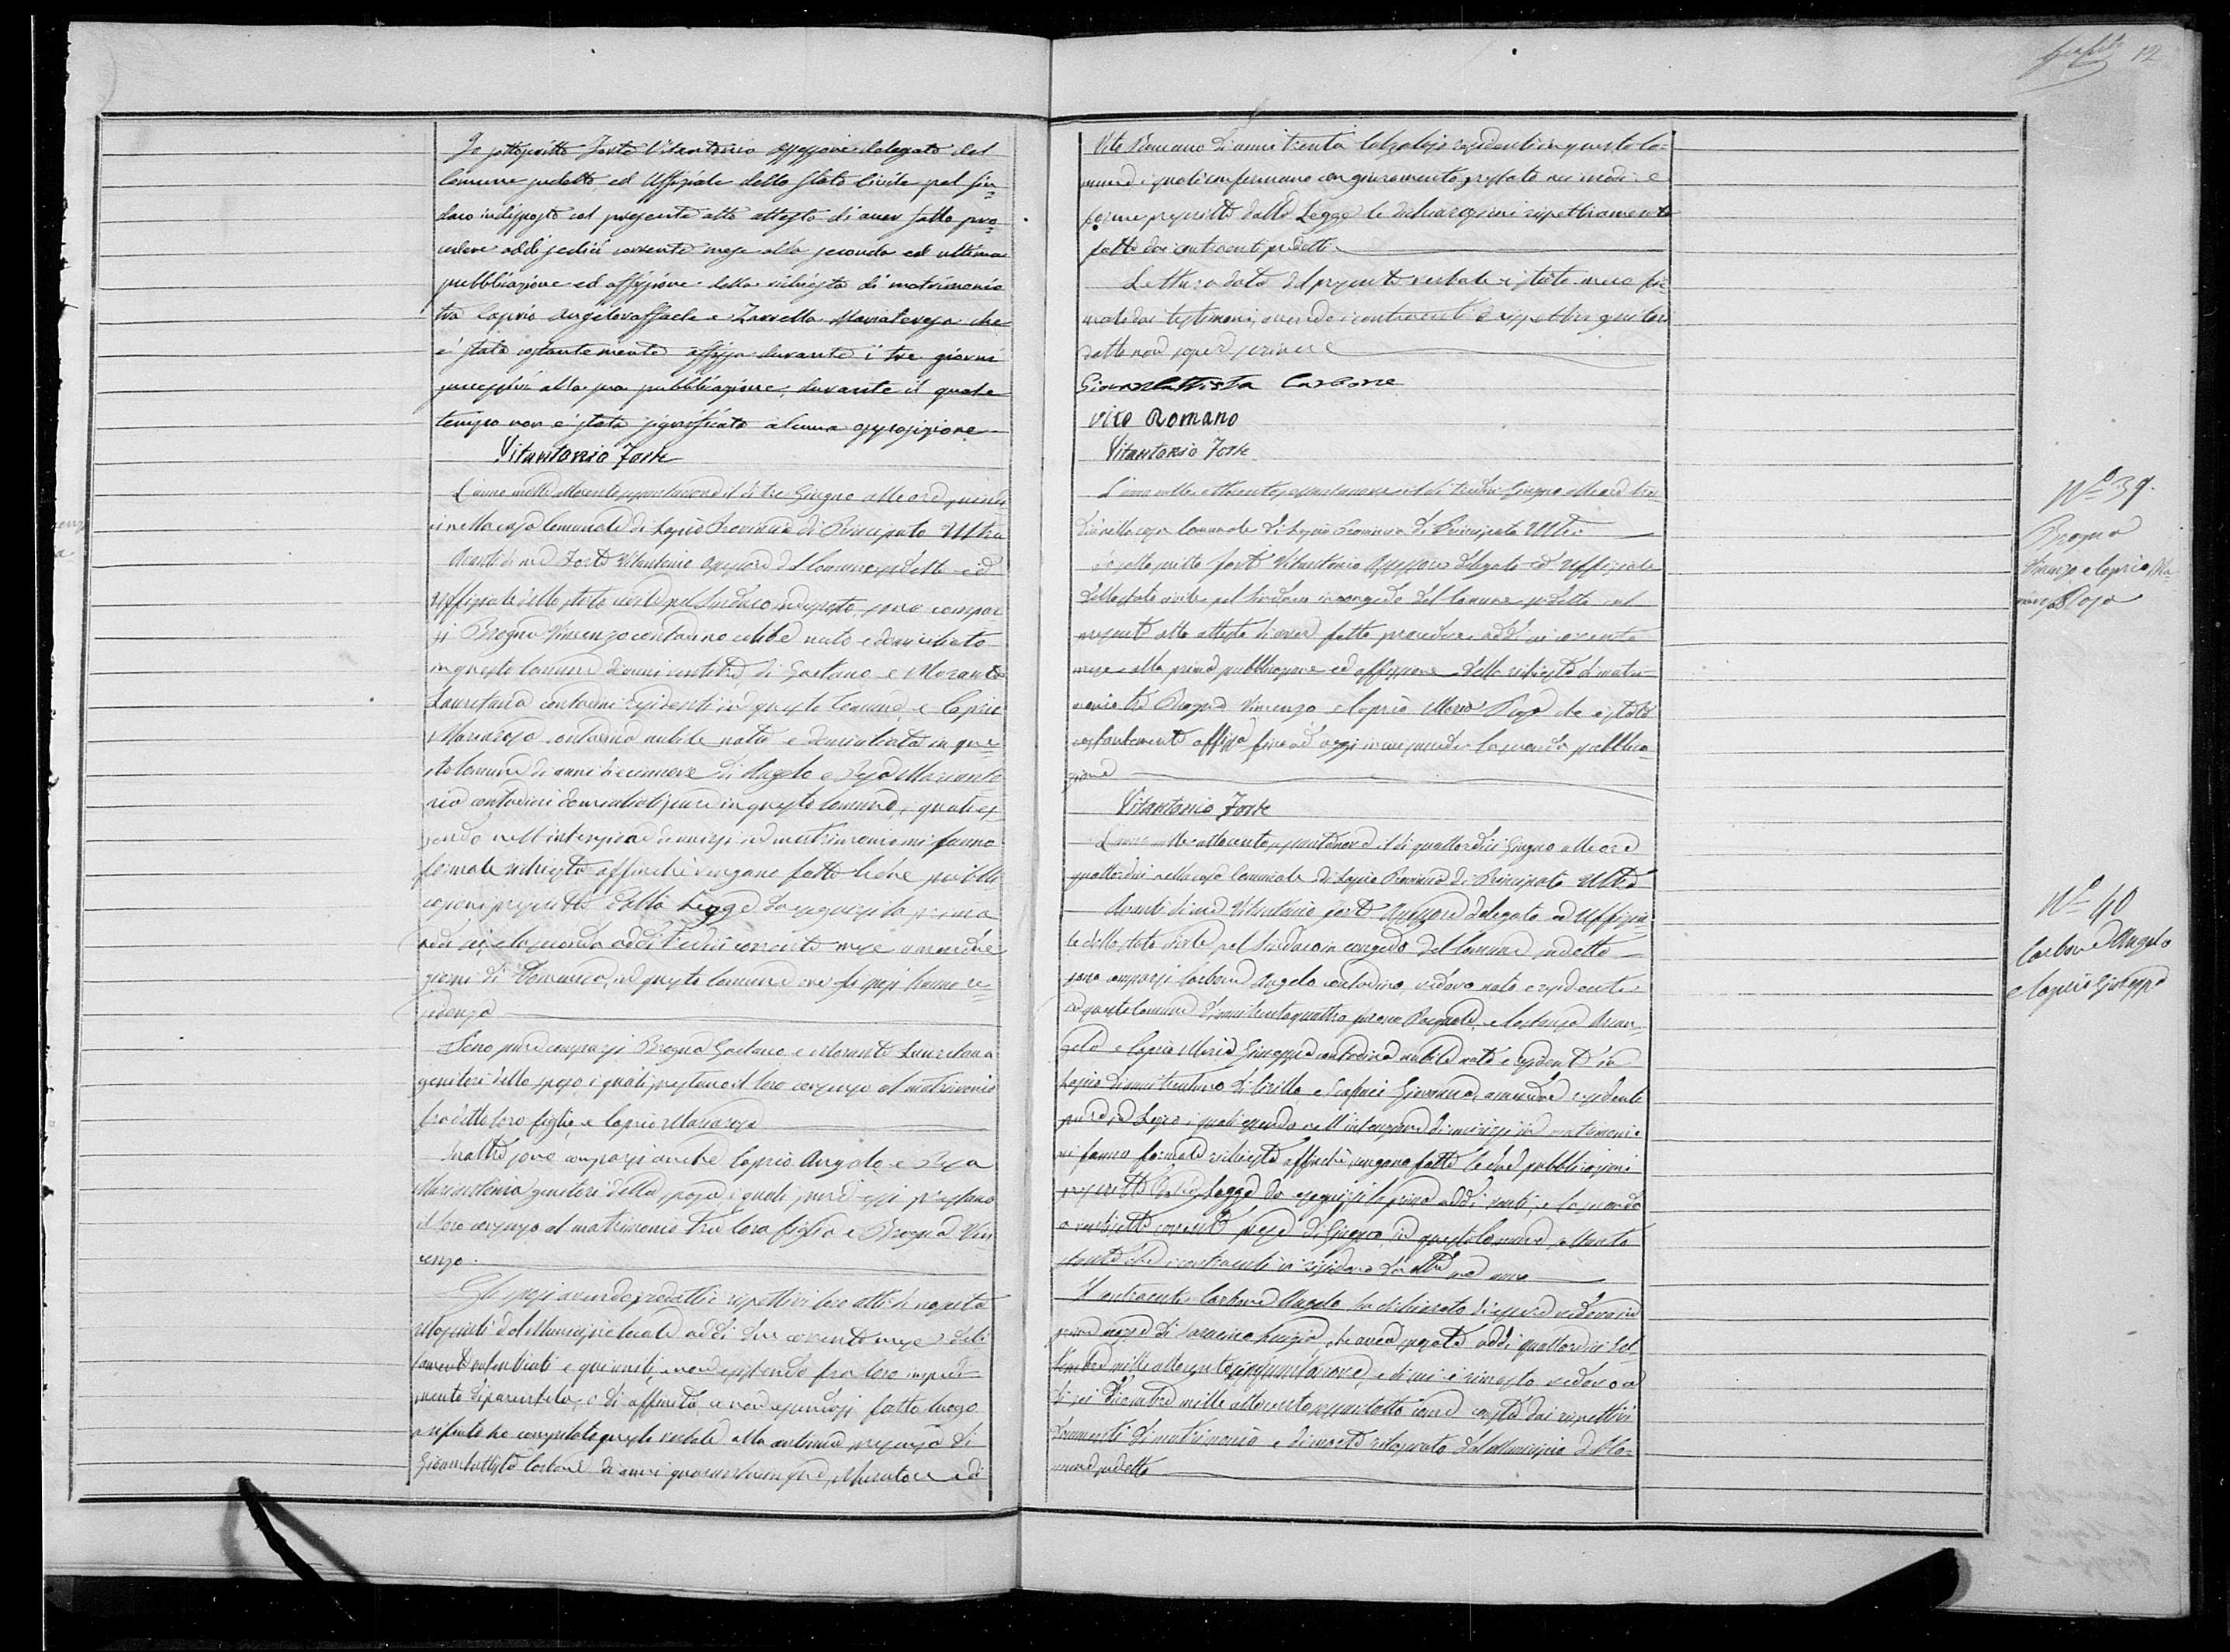 Io sottoscritto Forte Vitantonio assessore delegato del
Comune sudetto ed Uffiziale dello Stato Civile pel Sin=
daco indisposto col presente atto attesto di aver fatto pro=
cedere addì sedici corrente mese alla seconda ed ultima
pubblicazione ed affissione della richiesta di matrimonio
tra Caprio Angeloraffaele e Zarrella Mariateresa che
è stata costantemente affissa durante i tre giorni
successivi alla sua pubblicazione, durante il quale
tempo non è stata significata alcuna opposizione
Vitantonio Forte
L'anno mille ottocentosessantanove il dì tre Giugno alle ore quindi
ci nella casa Comunale di Lapio Provincia di Principato Ultra
Avanti di me Forte Vitantonio assessore del Comune sudetto ed
Uffiziale dello stato civile pel Sindaco indisposto sono compar
si Brogna Vincenzo contadino celibe nato e domiciliato
in questo Comune di anni ventitre, di Gaetano e Morante
Lauretana contadini residenti in questo Comune, e Caprio
Mariarosa contadina nubile nata e domiciliata in que=
sto Comune di anni diecinnove di Angelo e Marianto
nia contadini domiciliati pure in questo Comune, i quali es
sendo nell'intenzione di unirsi in matrimonio mi fanno
formale richiesta affinchè vengano fatte le due pubbli
cazioni prescritte dalla Legge da eseguirsi la prima
addì sei, e la seconda addì tredici corrente mese amendue
giorni di Domenica, in questo Comune ove gli sposi hanno re=
sidenza
Sono pure comparsi Brogna Gaetano e Morante Lauretana
genitori dello sposo, i quali prestano il loro consenso al matrimonio
fra detto loro figlio, e Caprio Mariarosa
Inoltre sono comparsi anche Caprio Angelo e
Mariantonia genitori della sposa i quali pure essi prestano
il loro consenso al matrimonio tra loro figlia e Brogna Vin
cenzo.
Gli sposi avendo prodotti i rispettivi loro atti di nascita
rilasciati dal Municipio locale addì due corrente mese debi
tamente autenticati e quì uniti, e non esistendo fra loro impedi=
mento di parentela, o di affinità, e non essendosi fatto luogo
a rifiuto ho compilato questo verbale alla continua presenza di
Giambattista Carbone di anni quarantacinque, Muratore e di
12
Vito Romano di anni trenta calzolajo residenti in questo Co=
mune i quali confermano con giuramento prestato nei modi e
forme prescritte dalla Legge le dichiarazioni rispettivamente
fatte dai contraenti sudetti
Lettura data del presente verbale è stato meco fir
mato dai testimoni, avendo i contraenti e rispettivi genitori
detto non saper scrivere
Giovanbattista Carbone
Vito Romano
Vitantonio Forte
L'anno mille ottocentosessantanove il dì tredici Giugno alle ore tre
dici nella casa Comunale di Lapio Provincia di Principato Ultra
Io sottoscritto Forte Vitantonio Assessore delegato ed Uffiziale
dello stato civile pel Sindaco in congedo del Comune sudetto col
presente atto attesto di aver fatto procedere addì sei corrente
mese alla prima pubblicazione ed affissione della richiesta di matri=
monio tra Brogna Vincenzo e Caprio Maria Rosa che è stata
costantemente affissa fino ad oggi in cui succede la seconda pubblica
zione
Vitantonio Forte
L'anno mille ottocentosessantanove il dì quattordici Giugno alle ore
quattordici nella casa Comunale di Lapio Provincia di Principato Ultra
Avanti di me Vitantonio Forte Assessore delegato ed Uffizia
le dello stato civile pel Sindaco in congedo del Comune sudetto
sono comparsi Carbone Angelo contadino, vedovo nato e residente
in questo Comune di anni trentaquattro furono Pasquale, e Costanza Arcan
gela e Caprio Maria Giuseppa contadina nubile nata e residente in
Lapio di anni trentuno di Cirillo e Giovanna, amendue residenti
pure in Lapio i quali essendo nell'intenzione di unirsi in matrimonio
mi fanno formale richiesta affinchè vengano fatte le due pubblicazioni
prescritte dalla Legge da eseguirsi la prima addì venti, e la seconda
a ventisette corrente mese di Giugno, in questo Comune soltanto
stante che i contraenti vi risiedono da oltre un anno
Il contraente Carbone Angelo ha dichiarato di essere vedovo in
prime nozze di Luigia, che aveva sposata addì quattordici Set=
tembre mille ottocentocinquantanove, e di cui è rimasto vedovo a
dì sei Dicembre mille ottocentosessantotto come consta dai rispettivi
documenti di matrimonio e di morte rilasciato dal Municipio del Co=
mune sudetto
N.° 39.
Brogna
Vincenzo e Caprio Ma=
ria Rosa
N.° 40
Carbone Angelo
e Caprio Giuseppa